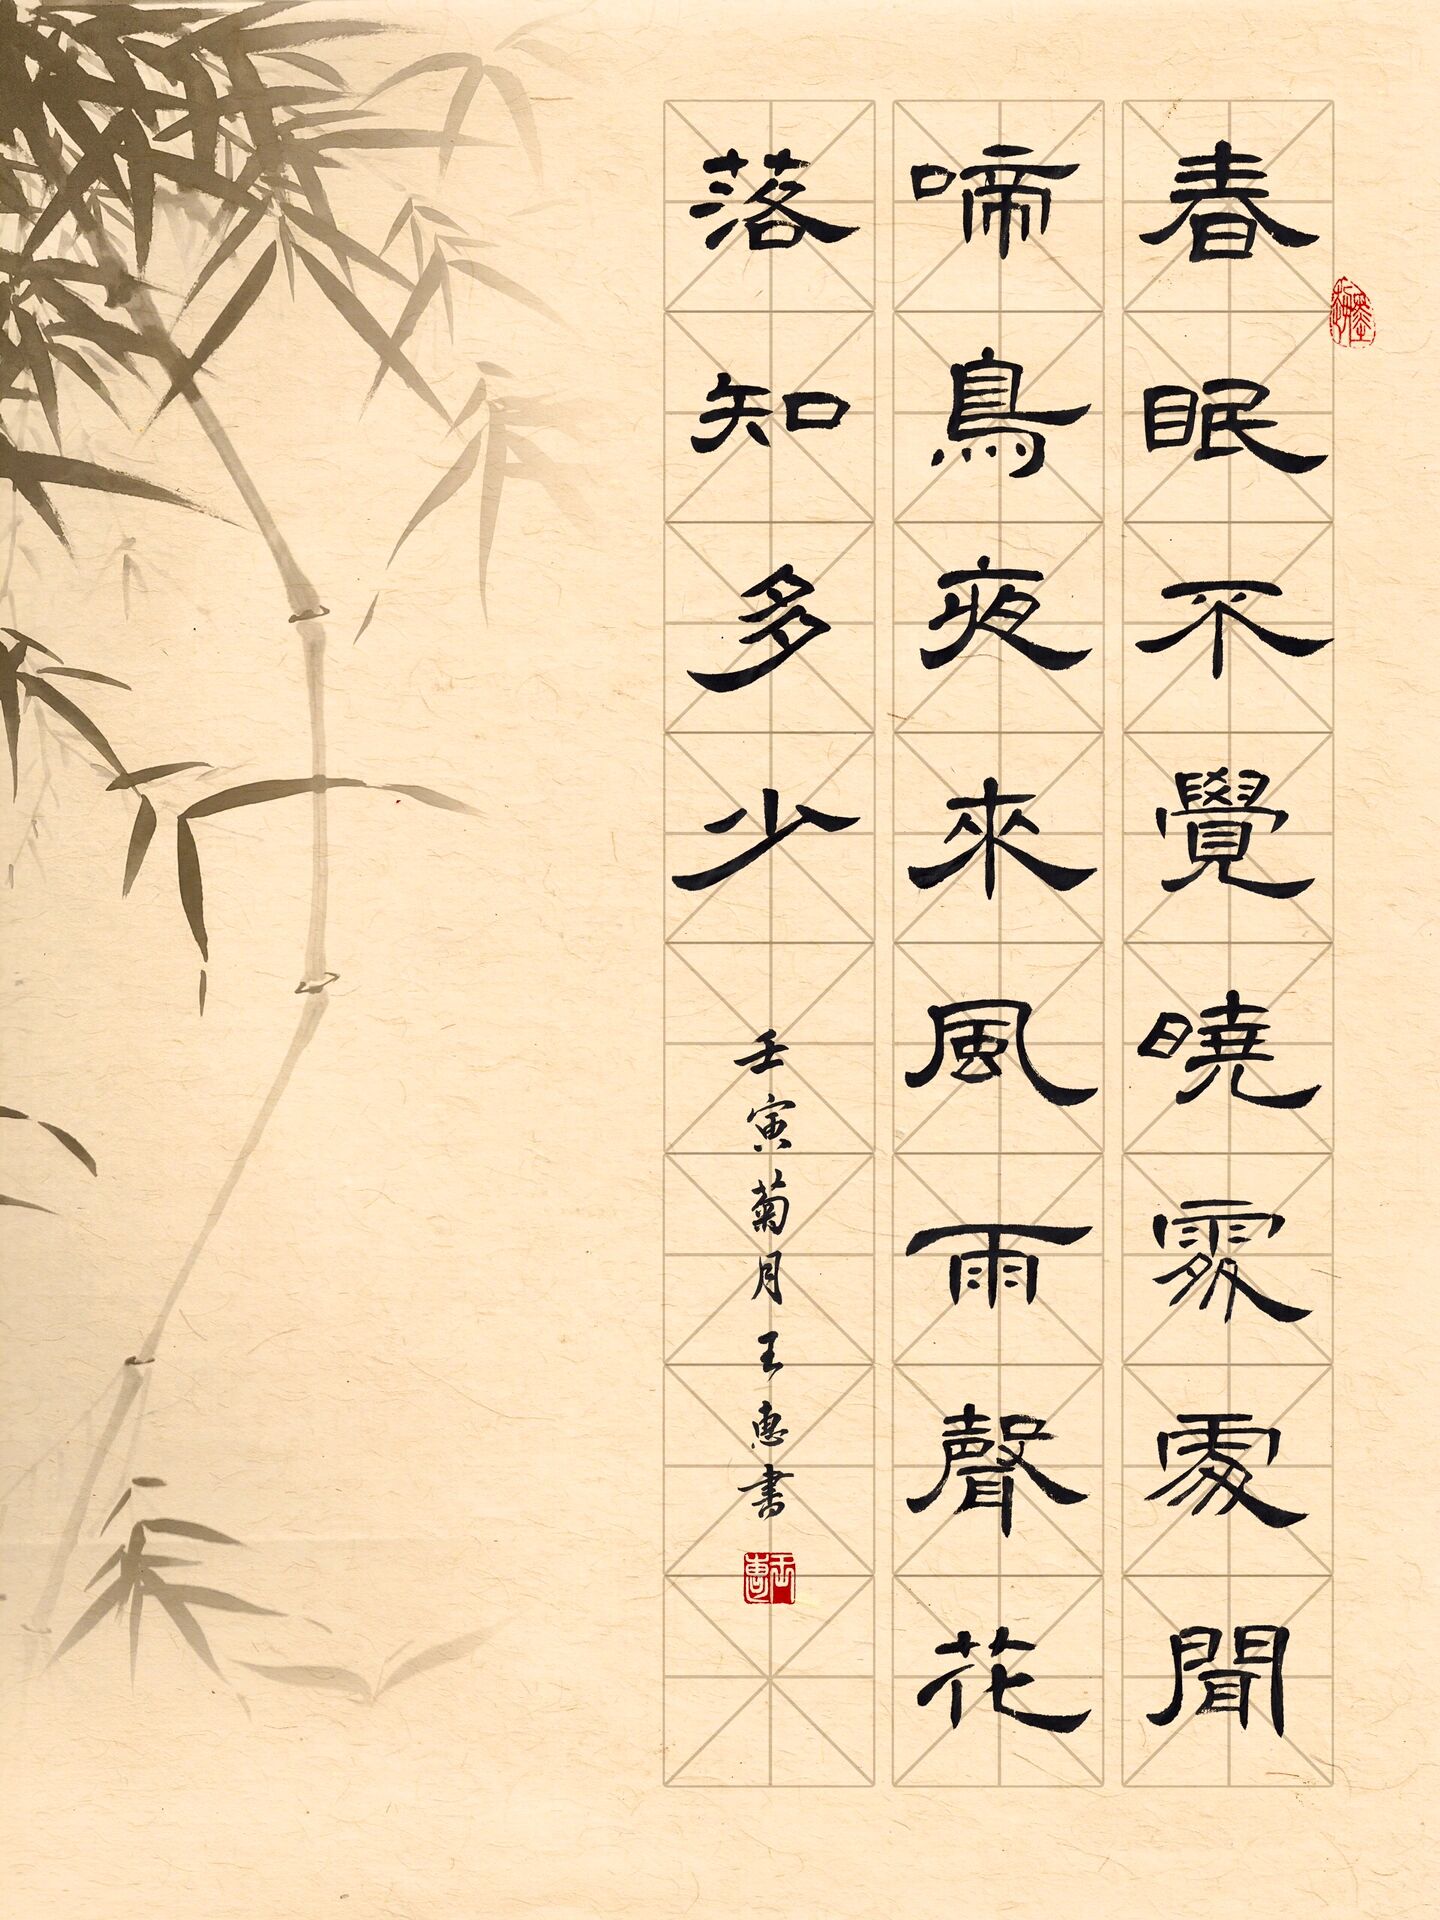 春眠不覺曉處處聞
啼鳥夜來風雨聲花
落知多少
壬寅菊月王惠書
王惠